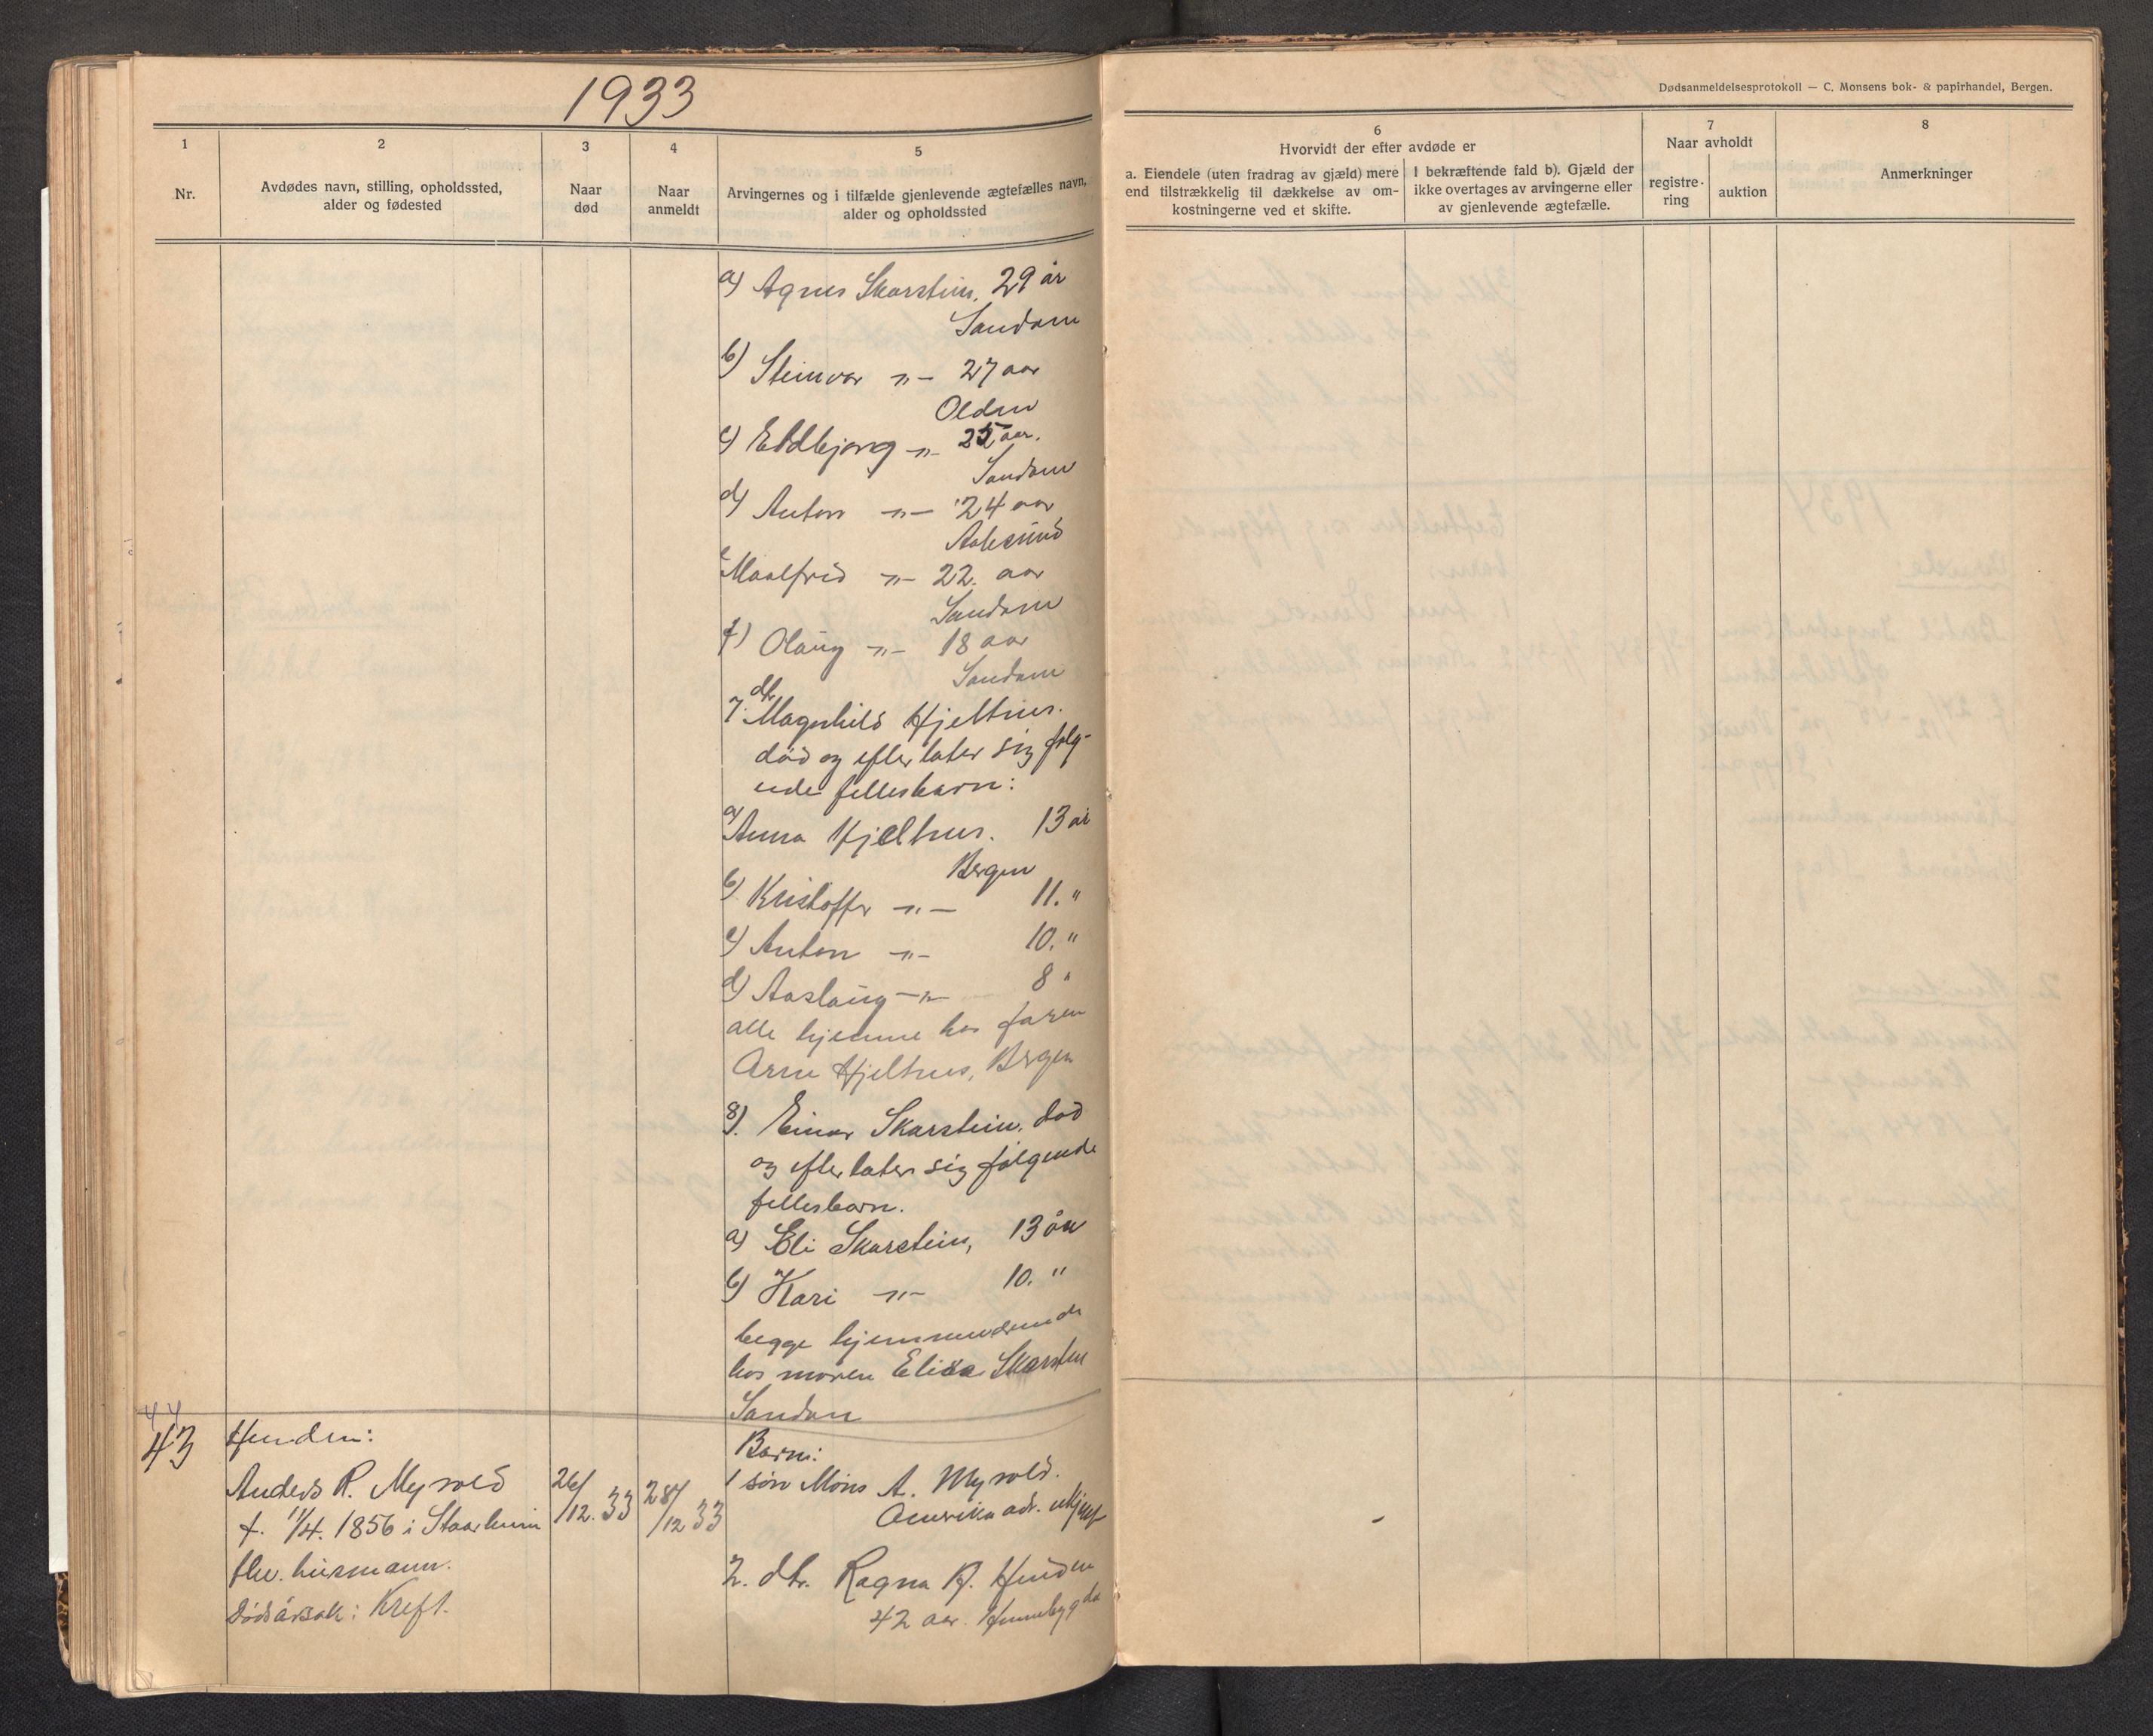 1933
1
Nr.
2
Avdødes navn, stilling, opholdssted,
alder og fødested
3
Naar
død
4
Naar
anmeldt
5
Arvingernes og i tilfælde gjenlevende ægtefælles navn,
alder og opholdssted
a) Agnes Skarstein, 29 år
Sandane
b) Steinvor -"- 27 aar
Olden
c) Eldbjorg -"- 25 aar.
Sandane
d) Anton -"- 24 aar
Aalesund
e Maalfrid -"- 22. aar
Sandane
f) Olaug -"- 18 aar
Sandane
7. dtr. Magnhild Hjeltnes.
død og efterlater sig følg-
ende fellesbarn:
a) Anna Hjeltnes. 13 år
Bergen
b) Kristoffer -"- 11. "
c) Anton -"- 10. "
d) Aaslaug -"- 8 "
alle hjemme hos faren
Arne Hjeltnes, Bergen
8). Einar Skarstein. død
og efterlater sig følgende
fellesbarn.
a) Eli Skarstein, 13 år
b) Kari -"- 10. "
begge hjemmeværende
hos moren Elisa Skarsten
Sandane
44
43
Henden:
Anders R. Myrold
f. 1/4. 1856 i Staarheim
fhv. husmann.
Dødsårsak: Kreft.
26/12. 33
28/12 33
Barn:
1 søn Mons A. Myrold.
Amerika adr. ukjent
2. dtr. Ragna R. Henden
42 aar. Hennebygda
Dødsanmeldelsesprotokoll — C. Monsens bok- & papirhandel, Bergen.
6
Hvorvidt der efter avdøde er
a. Eiendele (uten fradrag av gjæld) mere
end tilstrækkelig til dækkelse av om-
kostningerne ved et skifte.
I bekræftende fald b). Gjæld der
ikke overtages av arvingerne eller
av gjenlevende ægtefælle.
7
Naar avholdt
registre-
ring
auktion
8
Anmerkninger
-